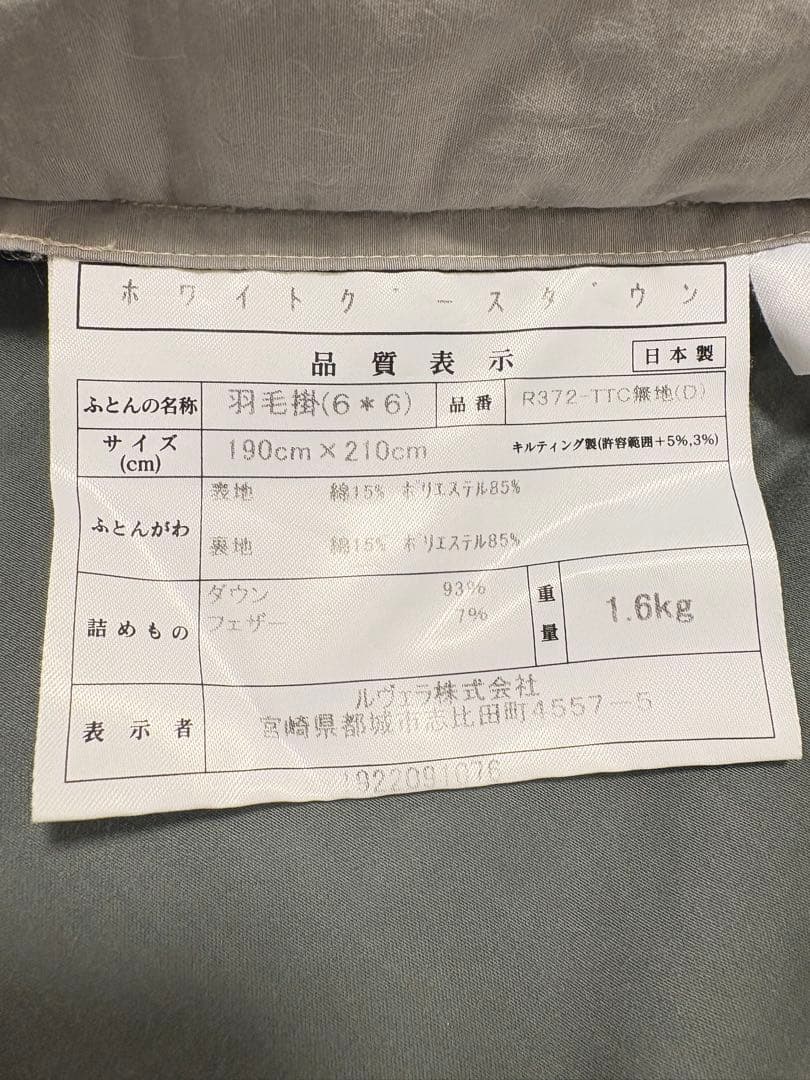 ホワイトグースダウン
品質表示
日本製
ふとんの名称 羽毛掛(6*6) 品番 R372-TTC無地(D)
サイズ(cm) 190cm×210cm キルティング製(許容範囲+5%,3%)
ふとんがわ
表地 綿15% ポリエステル85%
裏地 綿15% ポリエステル85%
詰めもの
ダウン 93%
フェザー 7%
重量 1.6kg
表示者
ルヴェラ株式会社
宮崎県都城市志比田町4557-5
1922091076